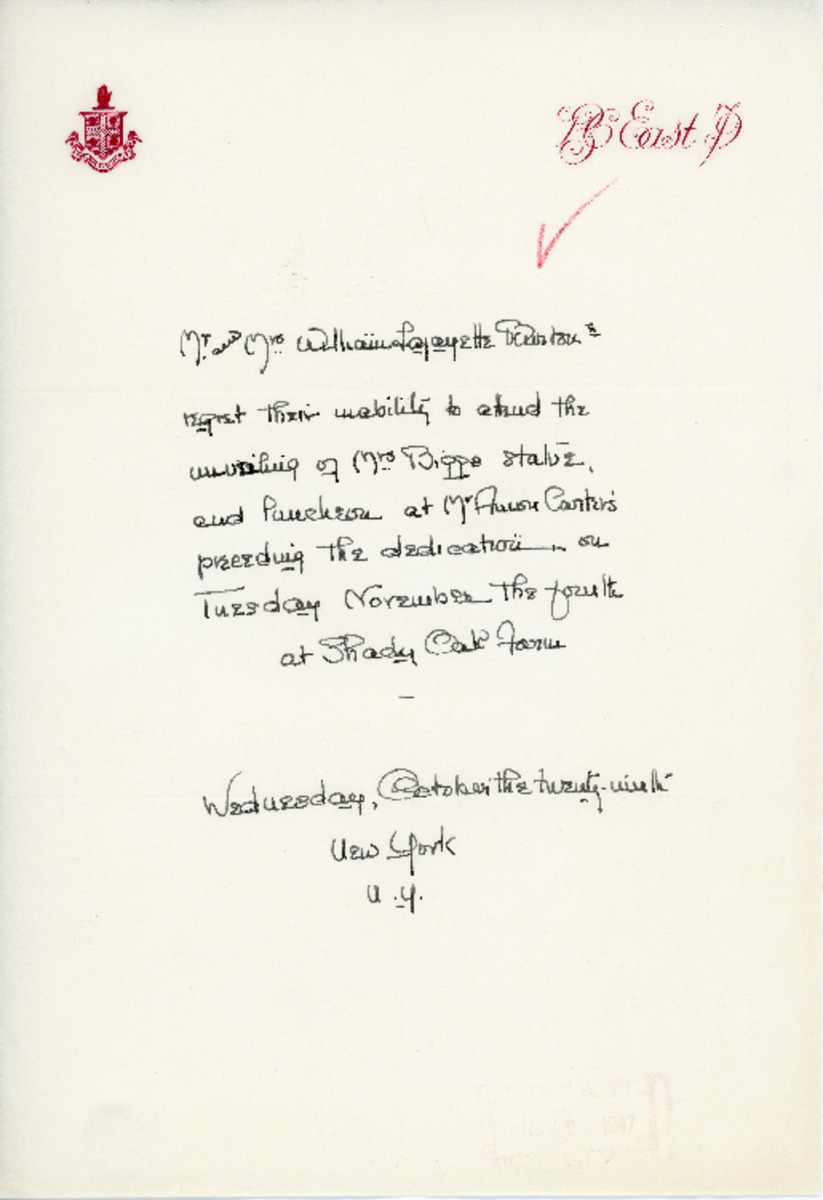 East
Mr. and Mrs. William Lafayette
regret their inability to attend the
unveiling of Mrs Biggs statue,
and luncheon at Mr Amon Carter's
preceeding the dedication on
Tuesday November the fourth
at Shady Oak Farm
Wednesday, October the twenty-ninth
New York
N.Y.
1947